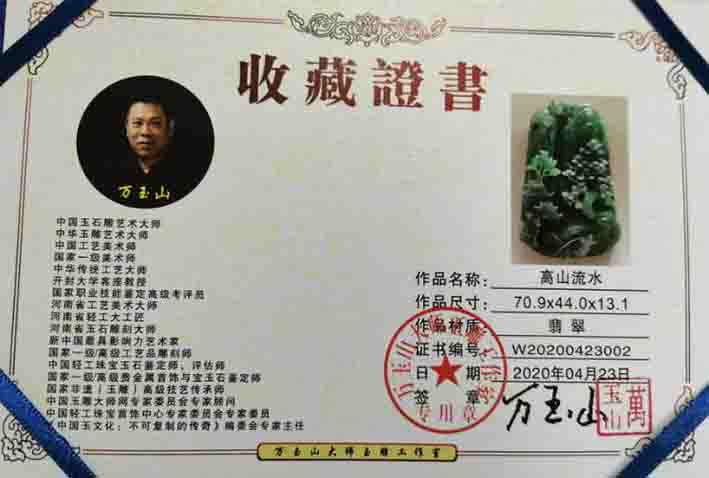 收藏證書
万玉山
中国玉石雕艺术大师
中华玉雕艺术大师
中国工艺美术师
国家一级美术师
中华传统工艺大师
开封大学客座教授
国家职业技能鉴定高级考评员
河南省工艺美术大师
河南省轻工大工匠
河南省玉石雕刻大师
新中国最具影响力艺术家
国家一级/高级工艺品雕刻师
中国轻工珠宝玉石鉴定师、评估师
国家一级/高级贵金属首饰与宝玉石鉴定师
国家非遗（玉雕）高级技艺传承师
中国玉雕大师网专家委员会专家顾问
中国轻工珠宝首饰中心专家委员会专家委员
《中国玉文化：不可复制的传奇》编委会专家主任
作品名称：高山流水
作品尺寸：70.9x44.0x13.1
作品材质：翡翠
证书编号：W20200423002
日期 2020年04月23日
签章
万玉山
萬玉山
专用章
万玉山大师玉雕工作室